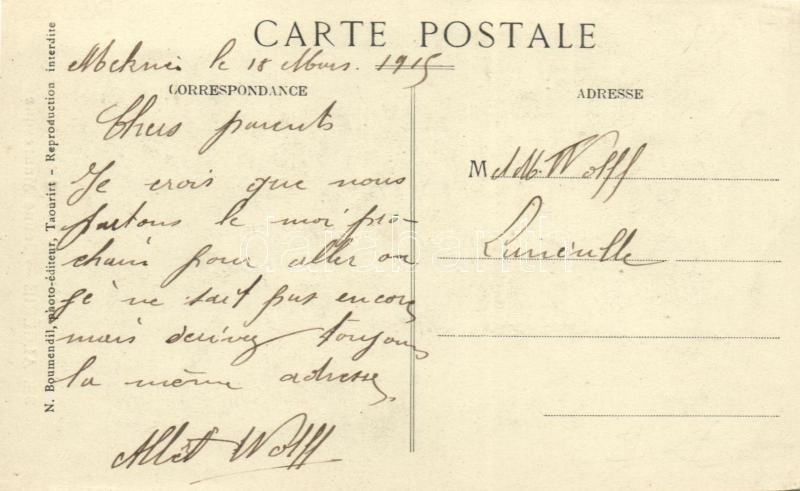 CARTE POSTALE
Meknès le 18 Mars. 1915
CORRESPONDANCE
Chers parents
Je crois que nous
partons le moi pro-
chain pour aller ou
je ne sait pas encore
mais écrivez toujours
la même adresse
Albert Wolff
ADRESSE
M et M. Wolff
Lunéville
N. Boumendil, photo-éditeur, Taourirt - Reproduction interdite
darabanth